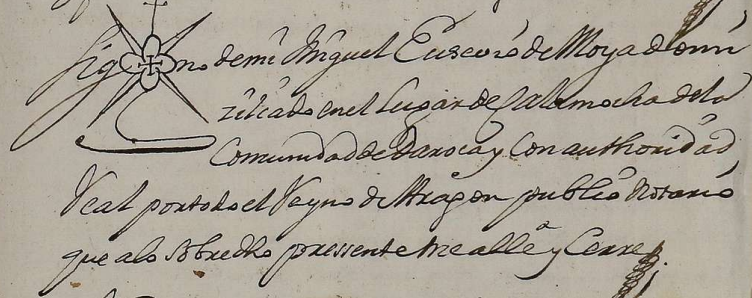 Sig no de mi Miguel Eusevio de Moya domi
ciliado en el Lugar de Calamocha dela
Comunidad de Daroca y con authoridad
Real por todo el Reyno de Aragon publico Notario
que alo sobredho pressente me allè y Cerre